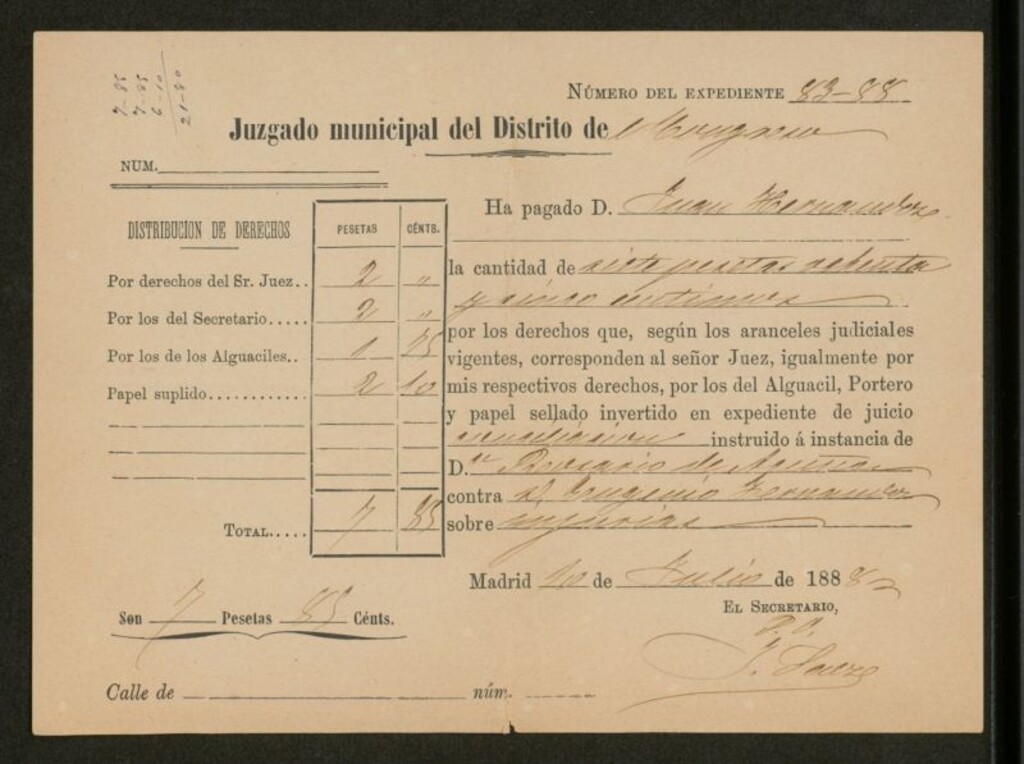 7-85
7-85
6-10
21-80
NÚMERO DEL EXPEDIENTE 83-88
Juzgado municipal del Distrito de
NUM.
Ha pagado D. Juan Hernandez
DISTRIBUCIÓN DE DERECHOS PESETAS CÉNTS.
la cantidad de siete pesetas ochenta
y cinco centimos
Por derechos del Sr. Juez.. 2 "
Por los del Secretario..... 2 "
Por los de los Alguaciles.. 1 75
Papel suplido............ 2 10
TOTAL..... 7 85
por los derechos que, según los aranceles judiciales
vigentes, corresponden al señor Juez, igualmente por
mis respectivos derechos, por los del Alguacil, Portero
y papel sellado invertido en expediente de juicio
conciliacion instruido á instancia de
D.ª Rosario de Acuña
contra D. Eugenio Hernandez
sobre injurias
Madrid 10 de Julio de 1888
EL SECRETARIO,
Son 7 Pesetas 85 Cénts.
Calle de núm.